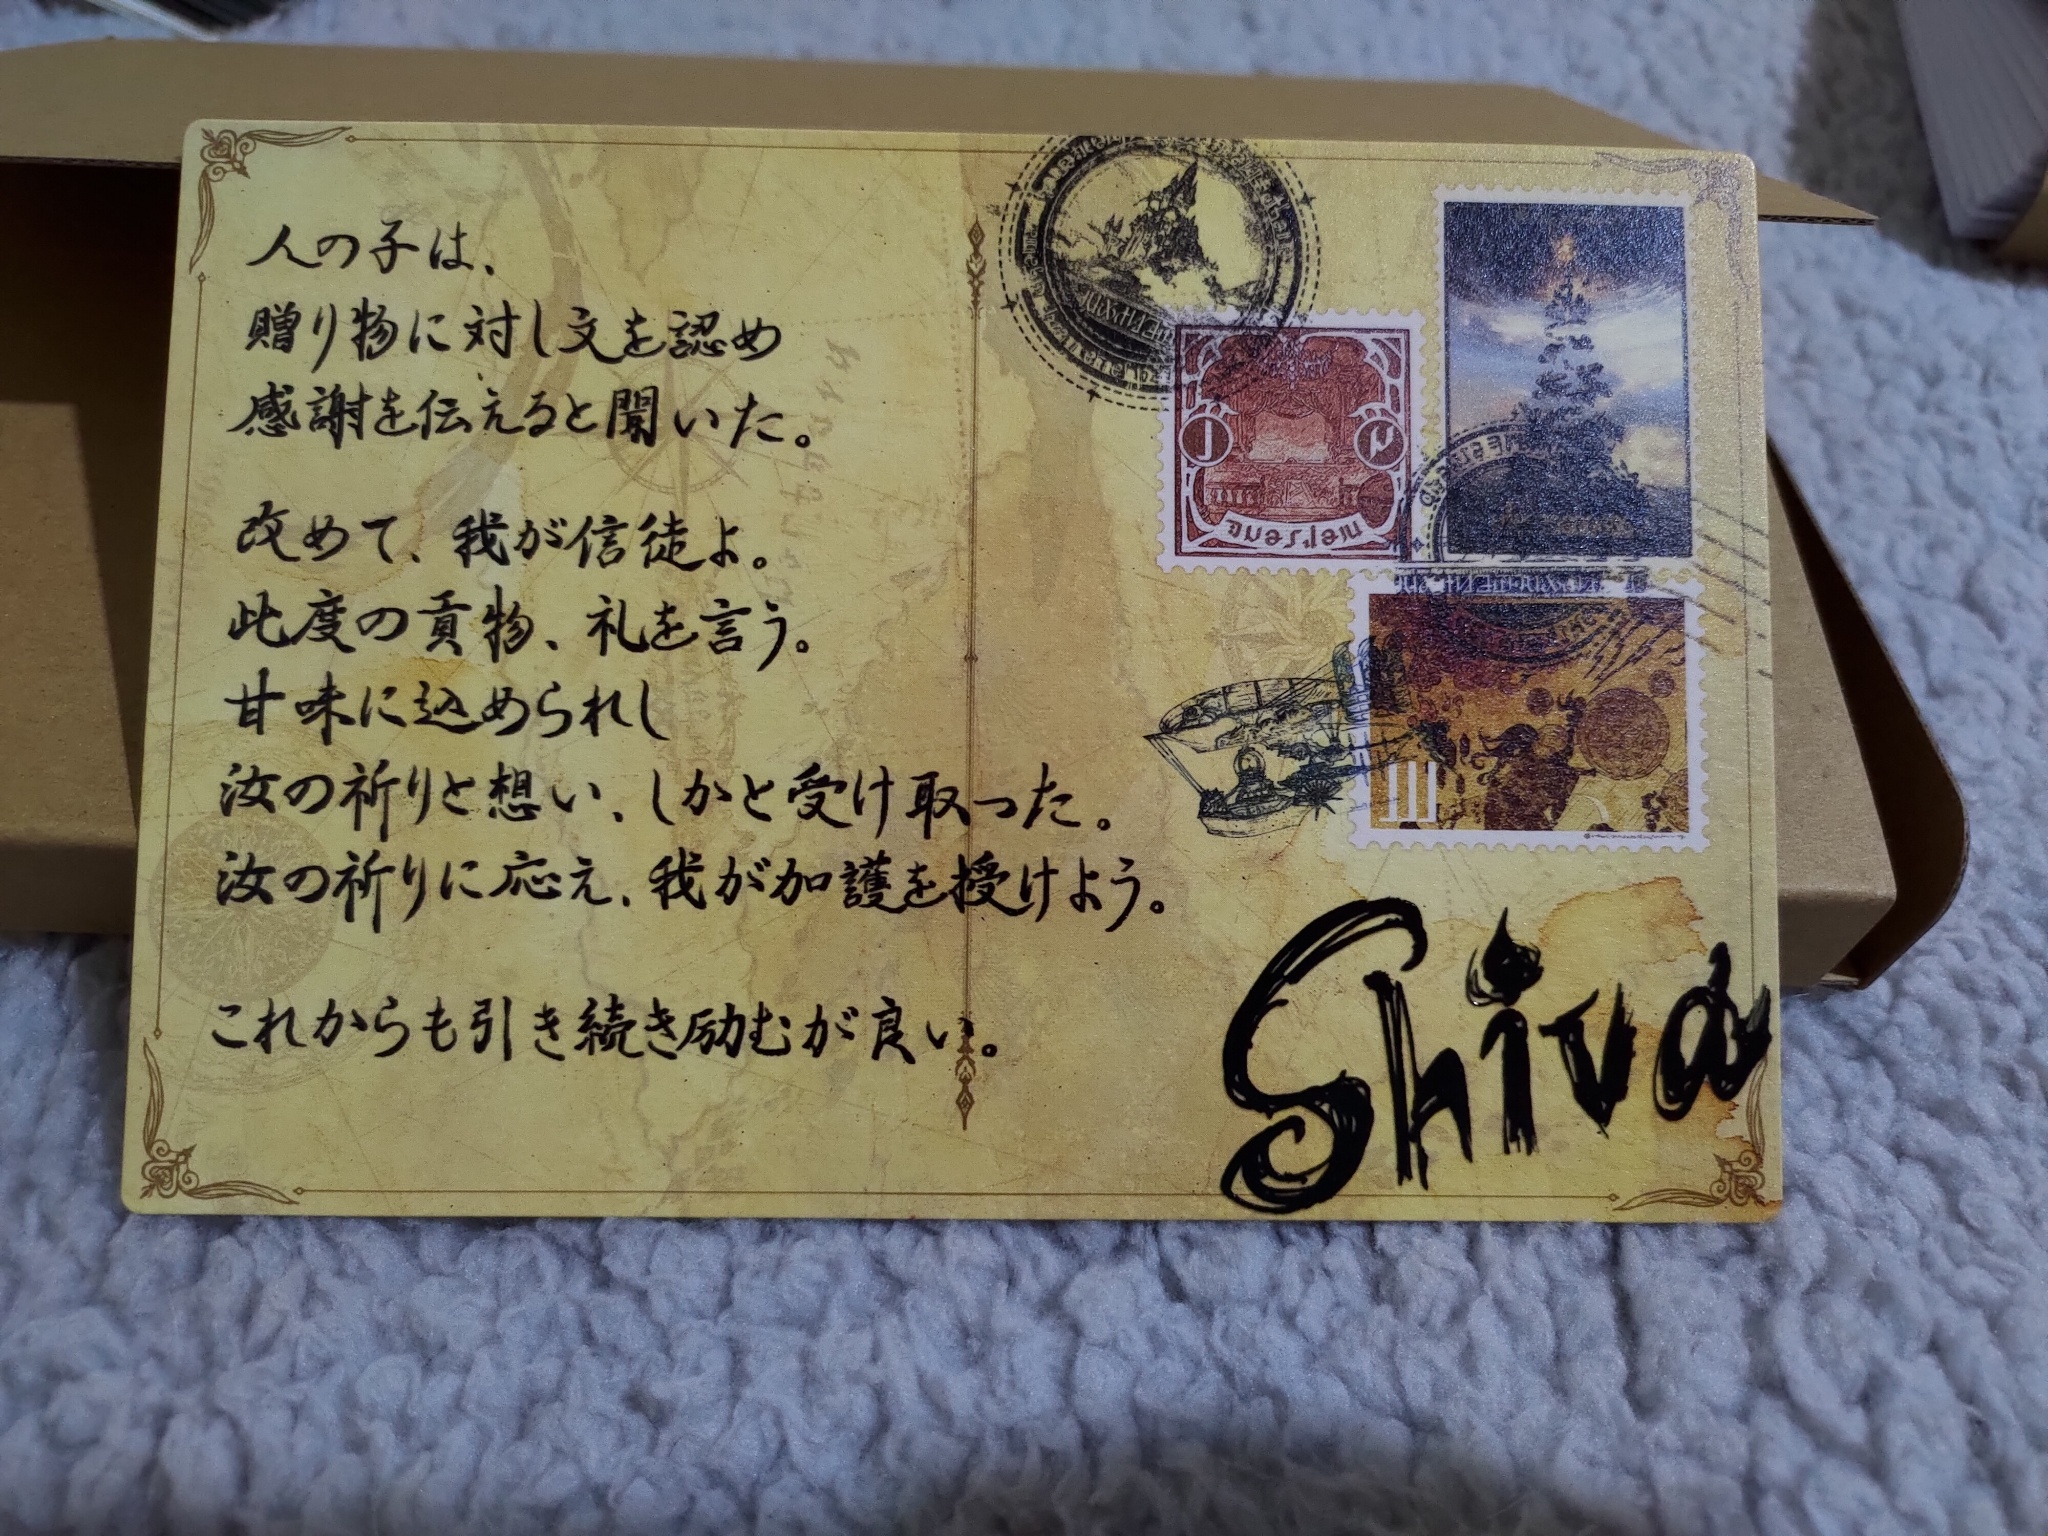 人の子は、
贈り物に対し文を認め
感謝を伝えると聞いた。
改めて、我が信徒よ。
此度の貢物、礼を言う。
甘味に込められし
汝の祈りと想い、しかと受け取った。
汝の祈りに応え、我が加護を授けよう。
これからも引き続き励むが良い。
Shiva